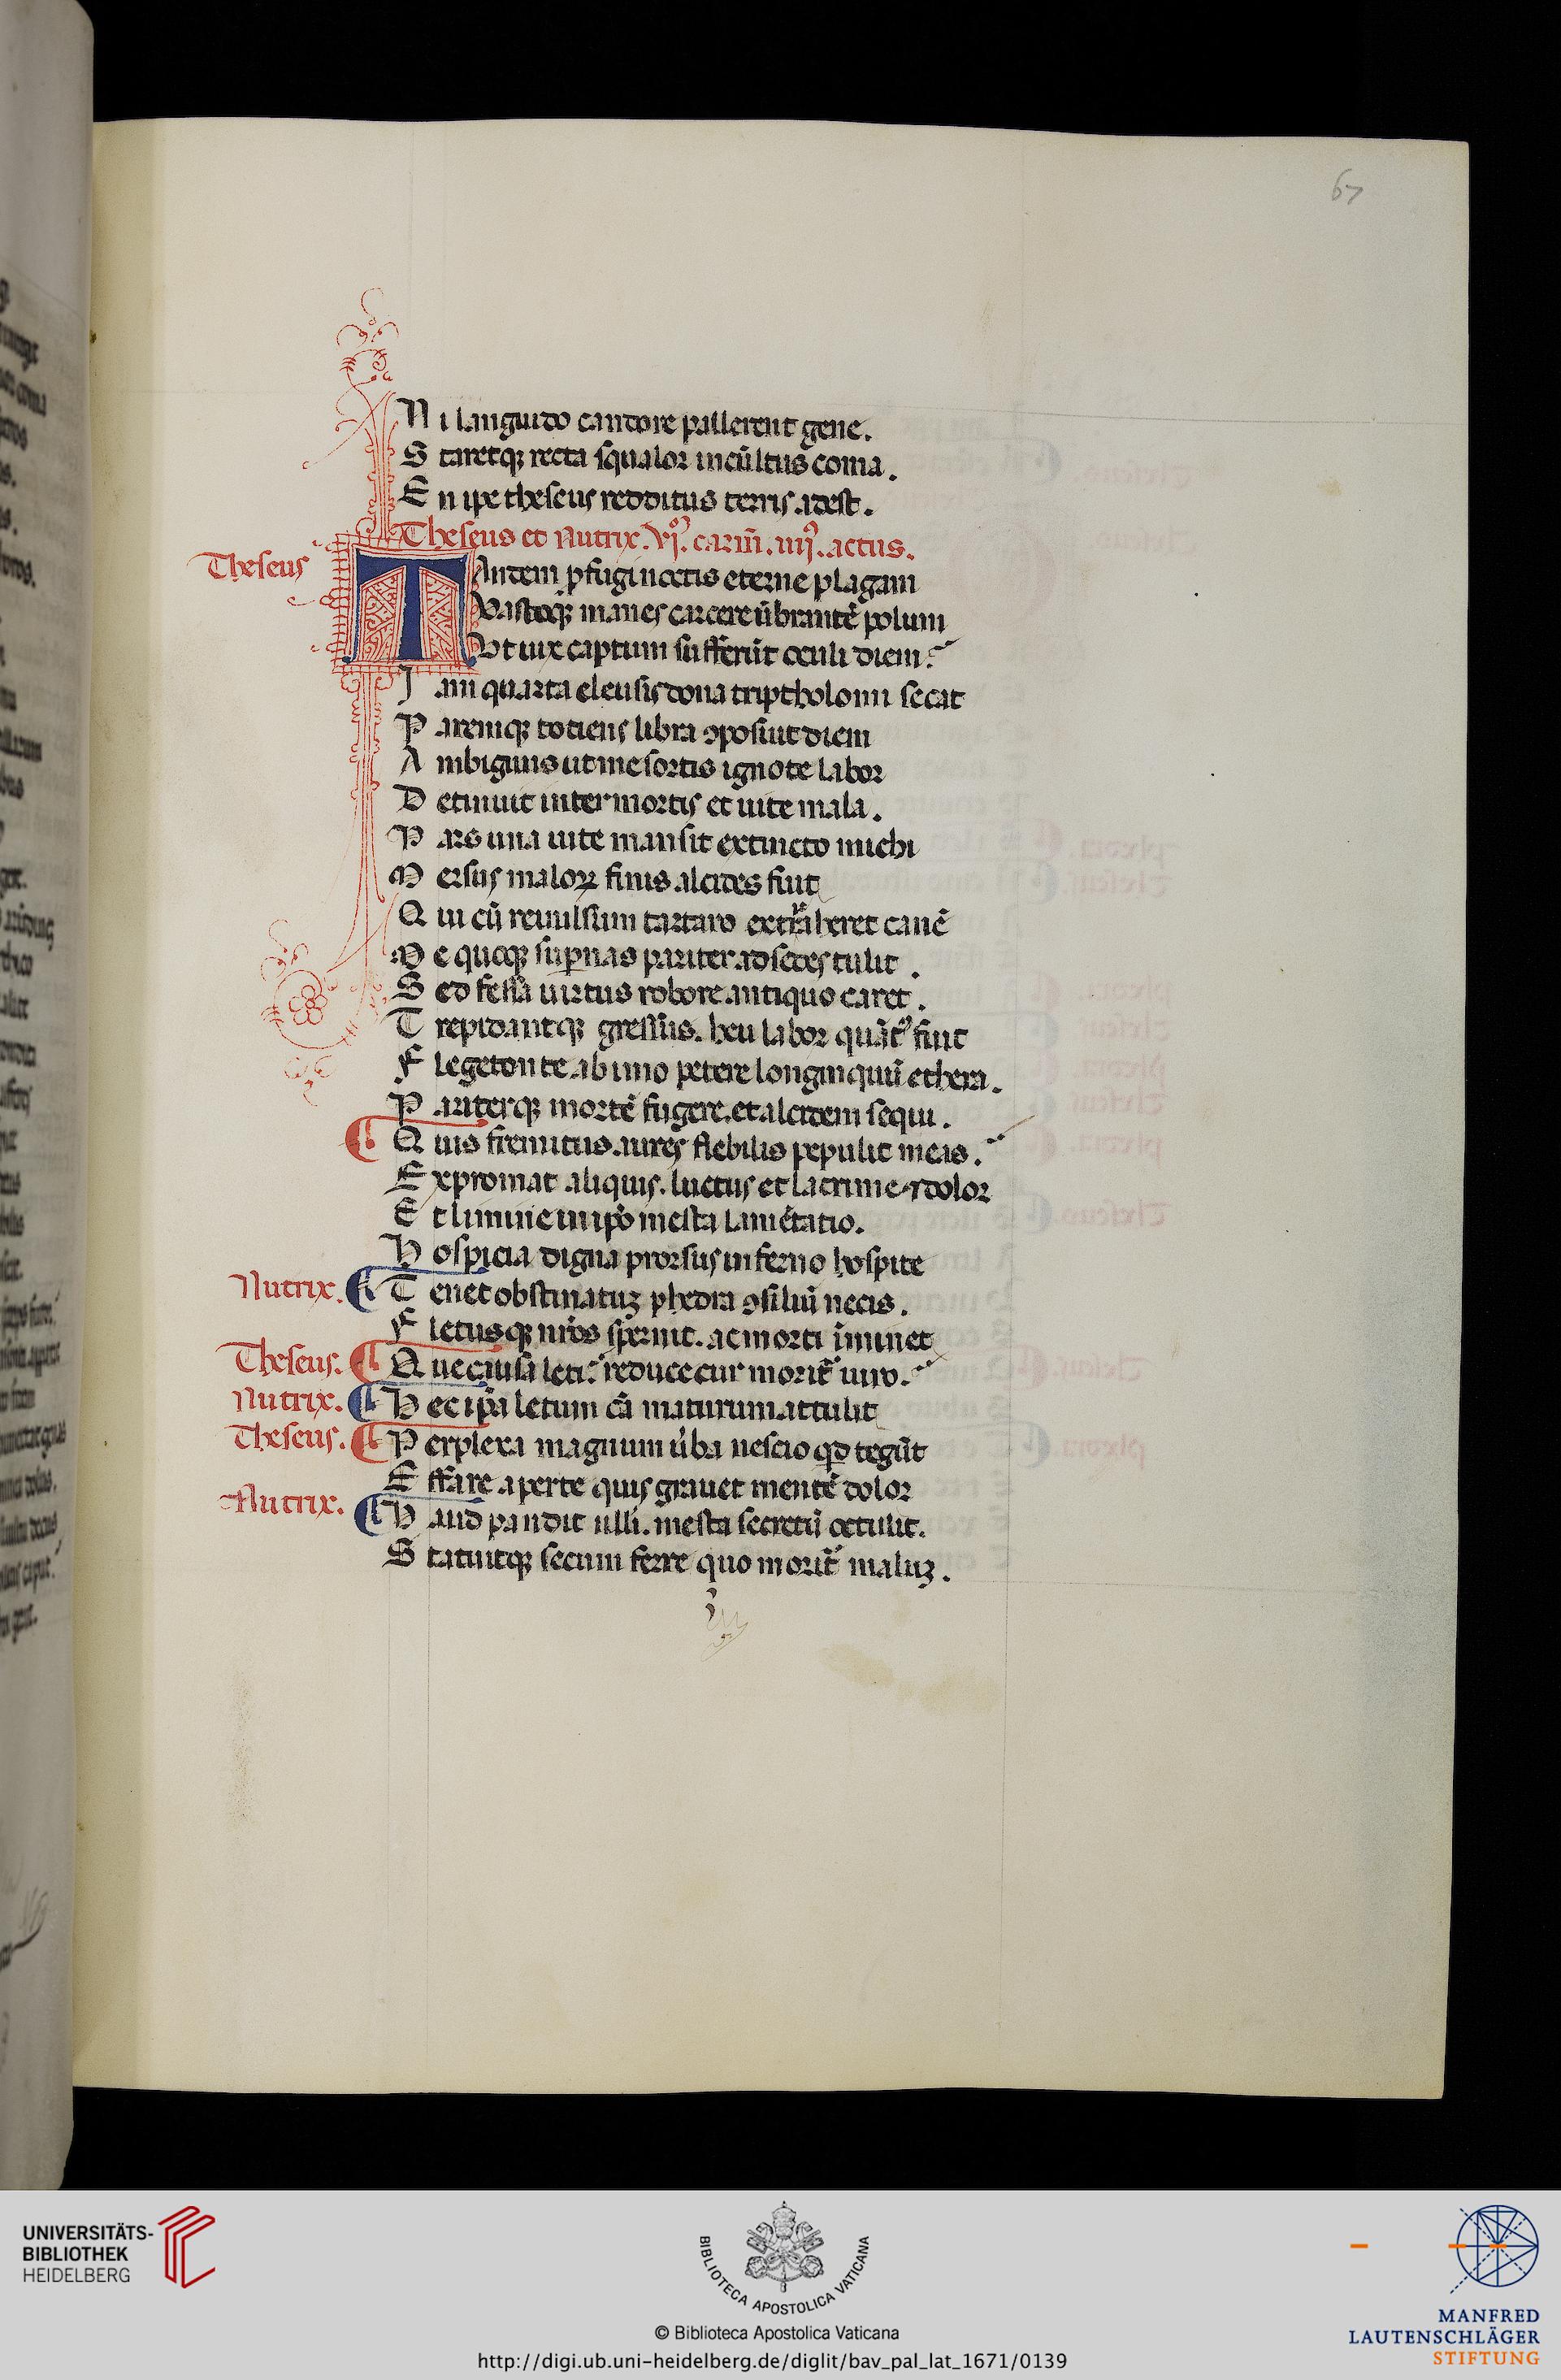 67
N i languido candore pallerent gene.
S taretq; recta squalor incultus coma.
E n ipe theseus redditus terris adest.
Theseus et Nutrix. vj⁹. carm̄. iiij⁹. actus.
Theseus
TAndem ꝓfugi noctis eterne plagam
Vastoq; manes carcere ūbrantē polum
Vt uix captum sufferūt oculi diem.
I am quarta eleusis dona triptholomi secat
P aremq; totiens libra ꝯposuit diem
A mbiguus ut me sortis ignote labor
D etinuit inter mortis et uite mala.
P ars una uite mansit extincto michi
M ersus maloꝝ finis alcides fuit
Q ui cū reuulsum tartaro extraheret canē
M e quoq; suꝑnas pariter ad sedes tulit.
S ed fessa uirtus robore antiquo caret.
T repidantq; gressus. heu labor quāt⁹ fuit
F legetonte ab imo petere longinquū ethera.
P ariterq; mortē fugere. et alcidem sequi.
Q uis fremitus aures flebilis pepulit meas.
E xpromat aliquis. luctus et lacrime ⁊ dolor
E t limine in ip̄o mesta lamētatio.
H ospicia digna prorsus inferno hospite
Nutrix. T enet obstinatuꝫ phedra ꝯsiliū necis.
F letusq; nr̄os spernit. ac morti īminet
Theseus. Q ue causa leti. reduce cur morit᷑ uiro.
Nutrix. H ec ip̄a letum cā maturum attulit
Theseus. P erplexa magnum ūba nescio qd tegūt
E ffare aperte quis grauet mentē dolor
Nutrix. H aud pandit ulli. mesta secretū occulit.
S tatuitq; secum ferre quo morit᷑ maluꝫ.
UNIVERSITÄTS-
BIBLIOTHEK
HEIDELBERG
BIBLIOTECA APOSTOLICA VATICANA
© Biblioteca Apostolica Vaticana
http://digi.ub.uni-heidelberg.de/diglit/bav_pal_lat_1671/0139
MANFRED
LAUTENSCHLÄGER
STIFTUNG